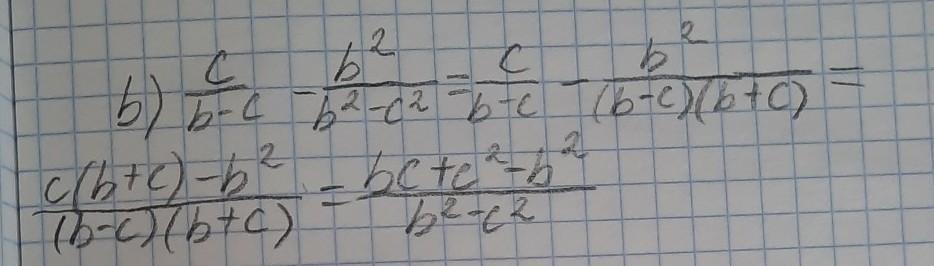 b) c/(b-c) - b²/(b²-c²) = c/(b-c) - b²/((b-c)(b+c)) =
(c(b+c)-b²)/((b-c)(b+c)) = (bc+c²-b²)/(b²-c²)